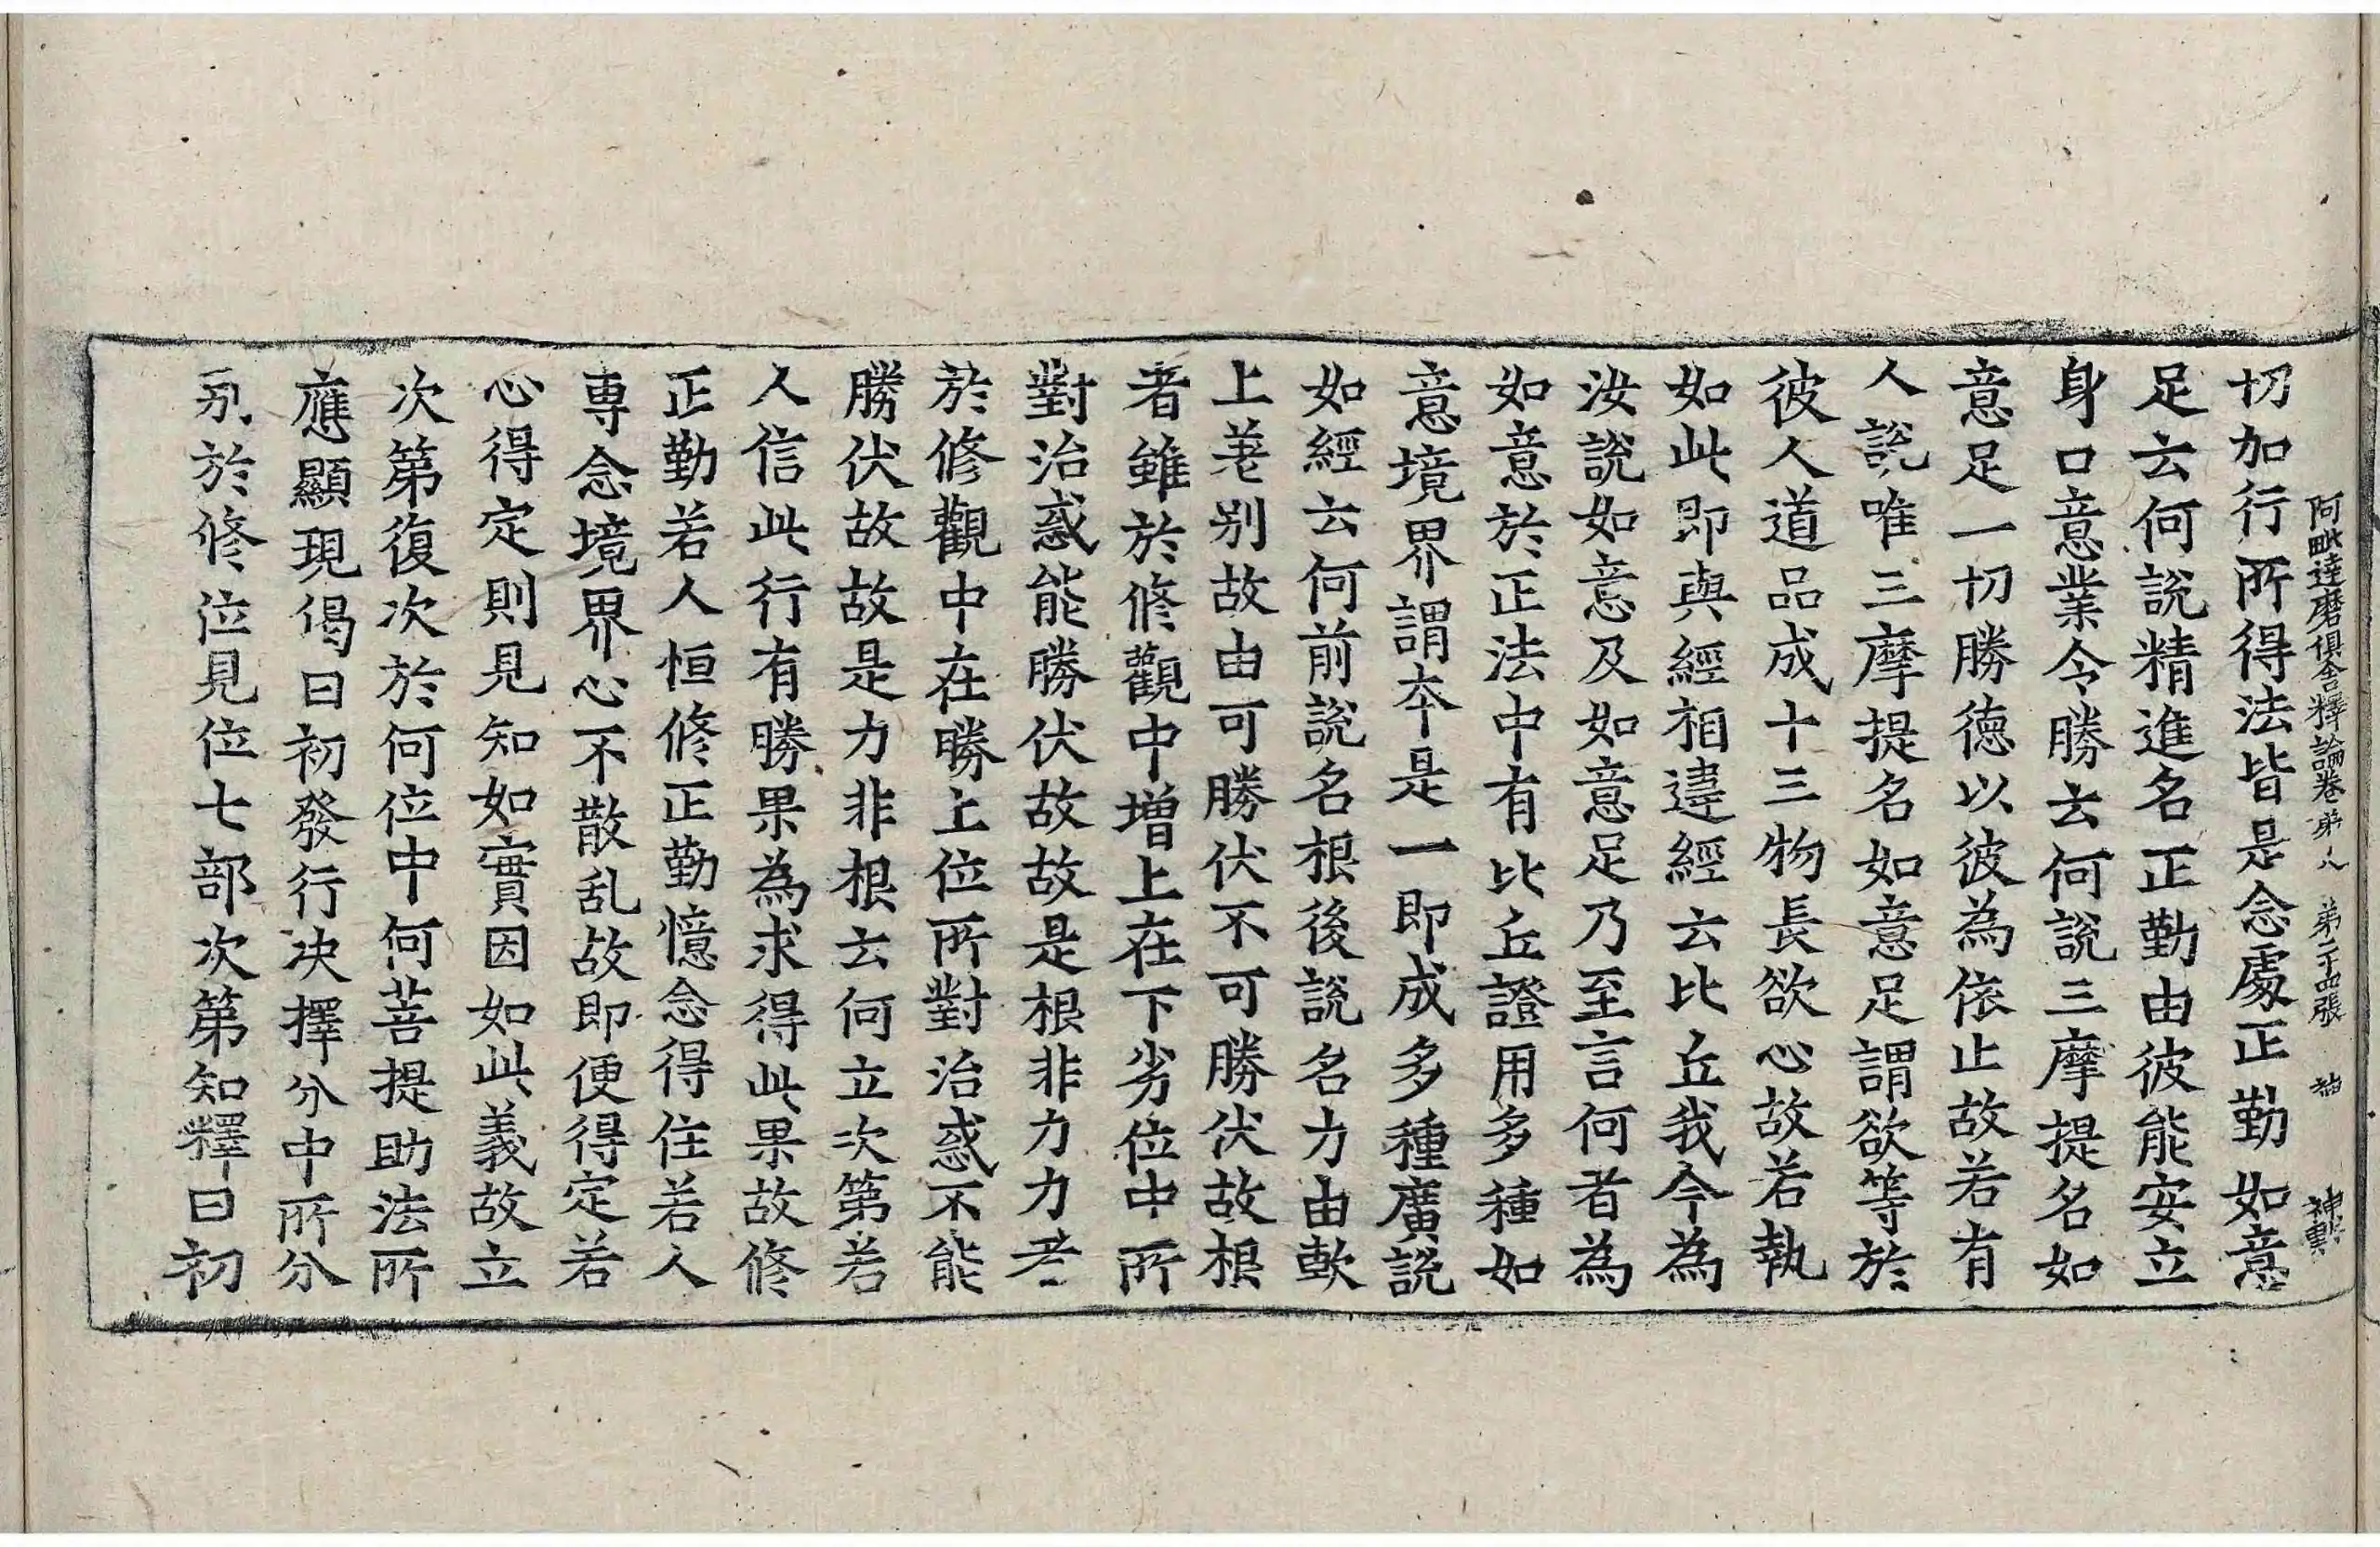 阿毗達磨俱舍釋論卷第八 第二十四張 神
切加行所得法皆是念處正勤如意
足云何說精進名正勤由彼能安立
身口意業令勝云何說三摩提名如
意足一切勝德以彼為依止故若有
人說唯三摩提名如意足謂欲等於
彼人道品成十三物長欲心故若執
如此即與經相違經云比丘我今為
汝說如意及如意足乃至言何者為
如意於正法中有比丘證用多種如
意境界謂本是一即成多種廣說
如經云何前說名根後說名力由軟
上差別故由可勝伏不可勝伏故根
者雖於修觀中增上在下劣位中所
對治惑能勝伏故故是根非力力者
於修觀中在勝上位所對治惑不能
勝伏故故是力非根云何立次第若
人信此行有勝果為求得此果故修
正勤若人恒修正勤憶念得住若人
專念境界心不散乱故即便得定若
心得定則見知如實因如此義故立
次第復次於何位中何菩提助法所
應顯現偈曰初發行决擇分中所分
別於修位見位七部次第知釋曰初